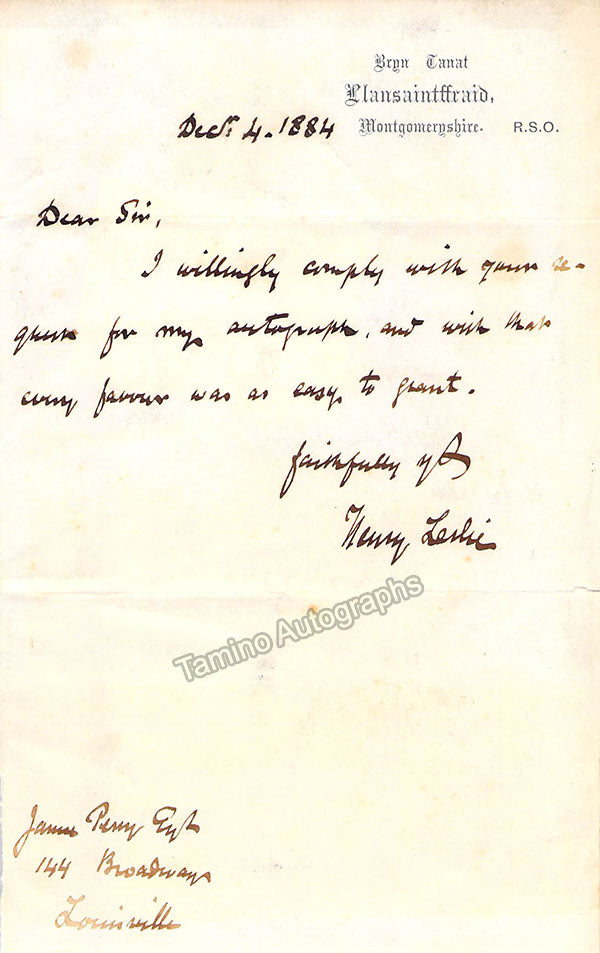 Bryn Tanat
Llansaintffraid,
Montgomeryshire. R.S.O.
Decr. 4. 1884
Dear Sir,
I willingly comply with your re-
quest for my autograph, and wish that
every favour was as easy to grant.
faithfully yrs
Henry Leslie
Tamino Autographs
James Perry Esqr
144 Broadway
Louisville